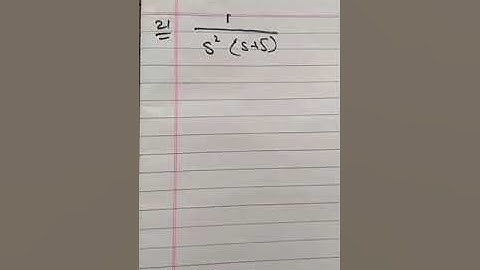 21 1
s² (s+5)